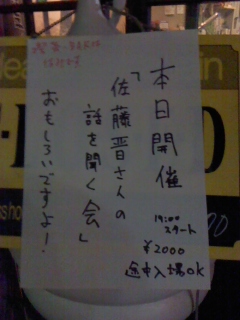 本日開催
「佐藤晋さんの
話を聞く会」
おもしろいですよ!
19:00
スタート
¥2000
途中入場OK